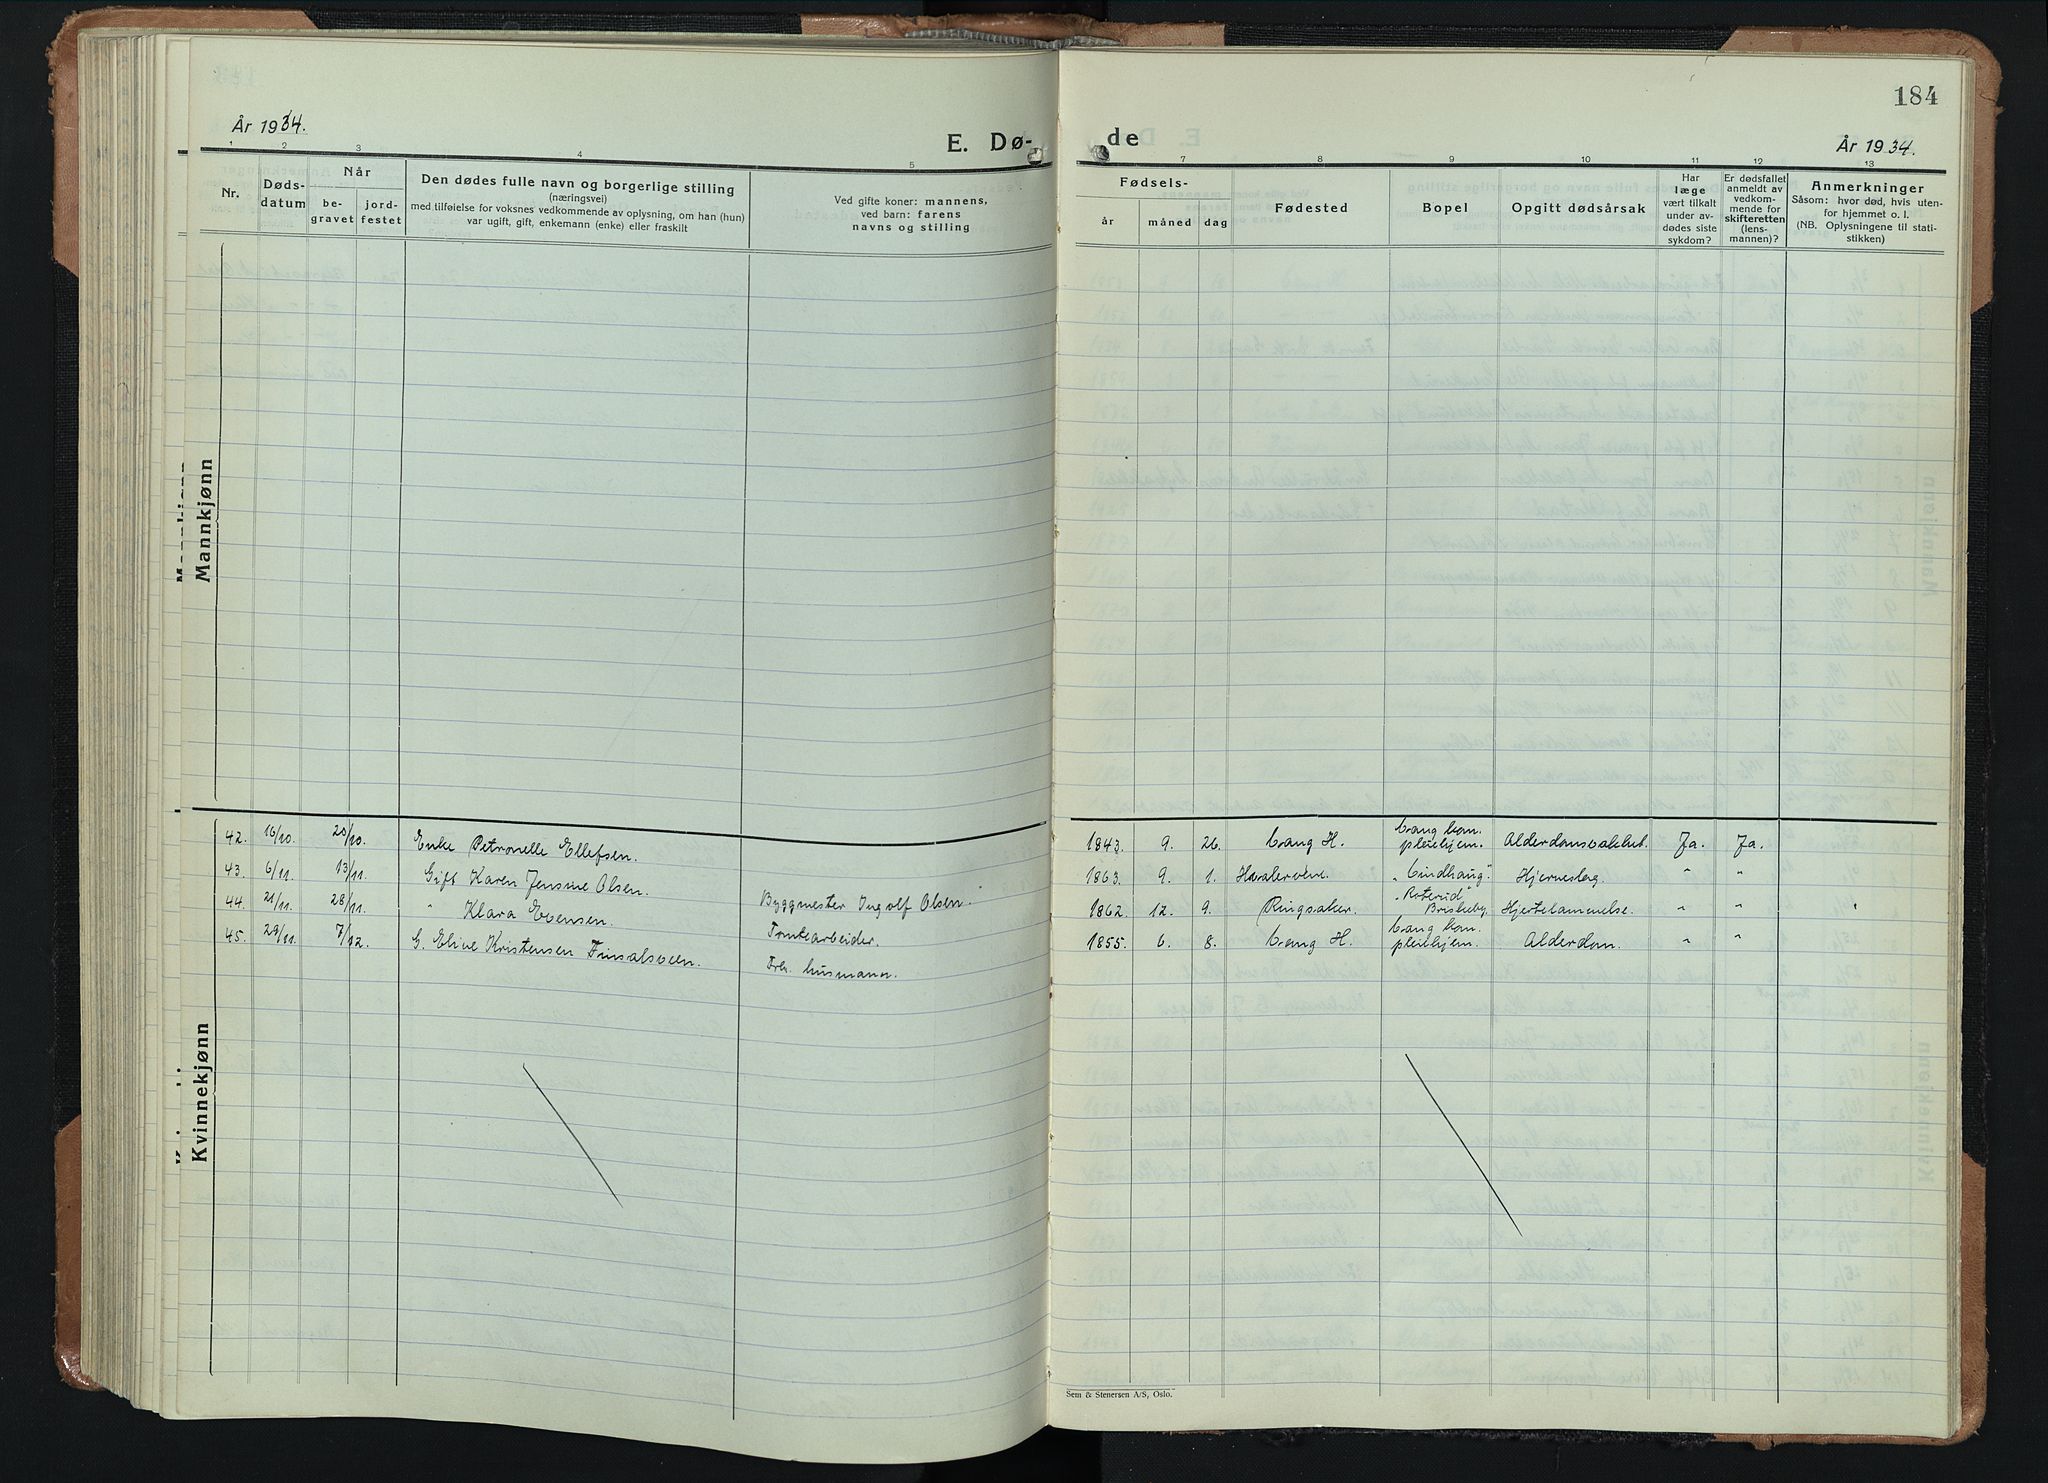 184
År 1934.
E. Dø-
de
År 1934.
1 2 3 4 5 7 8 9 10 11 12 13
Nr.
Døds-
datum
Når
be-
gravet
jord-
festet
Den dødes fulle navn og borgerlige stilling
(næringsvei)
med tilføielse for voksnes vedkommende av oplysning, om han (hun)
var ugift, gift, enkemann (enke) eller fraskilt
Ved gifte koner: mannens,
ved barn: farens
navns og stilling
Fødsels-
år
måned
dag
Fødested
Bopel
Opgitt dødsårsak
Har
læge
vært tilkalt
under av-
dødes siste
sykdom?
Er dødsfallet
anmeldt av
vedkom-
mende for
skifteretten
(lens-
mannen)?
Anmerkninger
Såsom: hvor død, hvis uten-
for hjemmet o. l.
(NB. Oplysningene til stati-
stikken)
Mannkjønn
Kvinnekjønn
42. 16/10. 20/10. Enke Petronelle Ellefsen. 1843. 9. 26. Vang H. Vang kom. pleiehjem. Alderdomsvakhet. Ja. Ja.
43. 6/11. 13/11. Gift Karen Jensine Olsen. Byggmester Ingolf Olsen. 1863. 9. 1. "Lindhaug". Hjerneslag. " "
44. 21/11. 28/11. " Klara Evensen. Tomtearbeider. 1862. 12. 9. Ringsaker. "Roterud" Briskeby. Hjertelammelse. " "
45. 29/11. 7/12. G. Eline Kristensen Finsalsveen. Frh. husmann. 1855. 6. 8. Vang H. Vang kom. pleiehjem. Alderdom. " "
Sem & Stenersen A/S, Oslo.